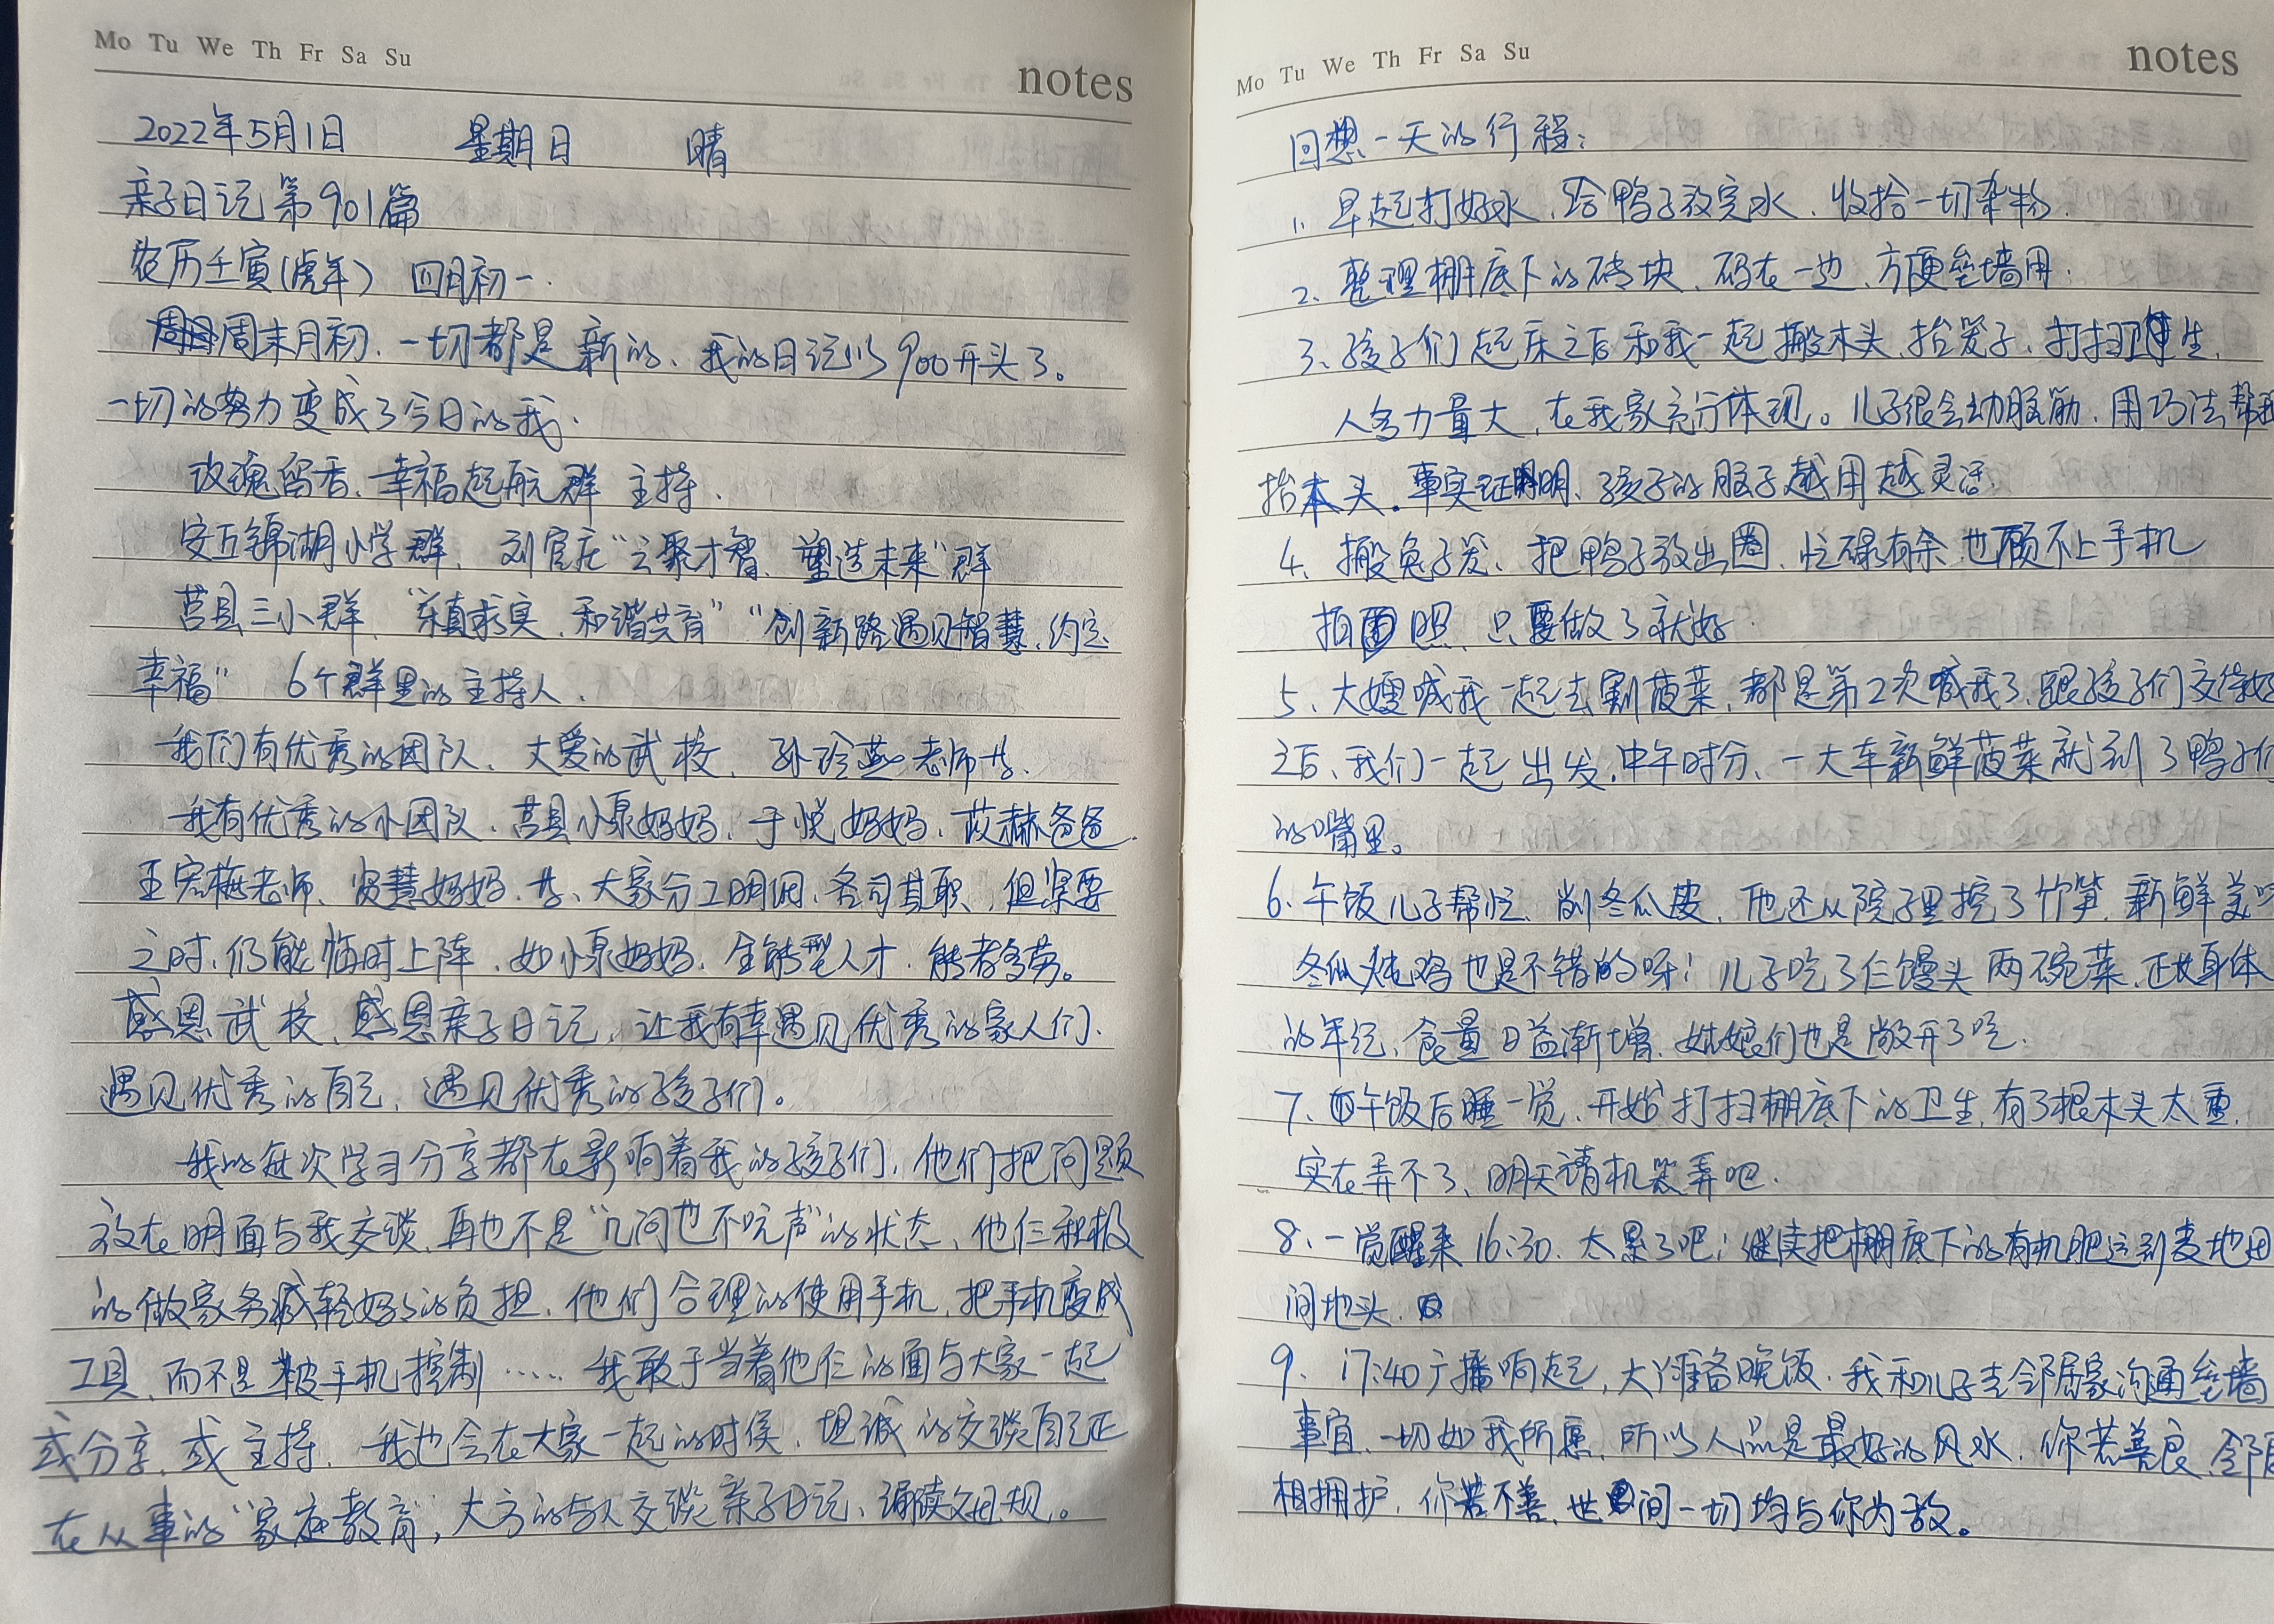 Mo Tu We Th Fr Sa Su
notes
2022年5月1日 星期日 晴
亲子日记第901篇
农历壬寅(虎年) 四月初一.
周末月初、一切都是新的、我的日记以900开头了。
一切的努力变成了今日的我.
玫瑰留香、幸福起航群 主持、
安丘锦湖小学群、刘官庄“云聚才智、塑造未来”群
莒县三小群、“求真求实、和谐共育”“创新路遇见智慧、约定
幸福” 6个群里的主持人、
我们有优秀的团队、大爱的武校、孙玲燕老师书、
我有优秀的小团队、莒县小原妈妈、于悦妈妈、苡赫爸爸
王宏梅老师、贤慧妈妈、书、大家分工明细、各司其职、但紧要
之时、仍能临时上阵、如小原妈妈、全能型人才、能者多劳。
感恩武校、感恩亲子日记、让我有幸遇见优秀的家人们、
遇见优秀的自己、遇见优秀的孩子们。
我的每次学习分享都在影响着我的孩子们、他们把问题
放在明面与我交谈、再也不是“几问也不吭声”的状态、他仨积极
的做家务减轻妈妈的负担、他们合理的使用手机、把手机变成
工具、而不是被手机控制…… 我敢于当着他仨的面与大家一起
或分享、或主持、我也会在大家一起的时侯、坦诚的交谈自己正
在从事的“家庭教育”, 大方的与人交谈亲子日记、诵读父母规。
Mo Tu We Th Fr Sa Su
notes
回想一天的行程:
1、早起打好水、给鸭子放完水、收拾一切杂物.
2、整理棚底下的砖块、码在一边、方便垒墙用.
3、孩子们起床之后和我一起搬木头、抬笼子、打扫卫生、
人多力量大、在我家充分体现。儿子很会动脑筋、用巧法帮我
抬木头。事实证明、孩子的脑子越用越灵活
4、搬兔子笼、把鸭子放出圈、忙碌有余也顾不上手机
拍照、只要做了就好
5、大嫂喊我一起去割菠菜、都是第2次喊我了、跟孩子们交待好
之后、我们一起出发、中午时分、一大车新鲜菠菜就到了鸭子们
的嘴里。
6、午饭儿子帮忙、削冬瓜皮、他还从院子里挖了竹笋、新鲜美味
冬瓜炖鸡也是不错的呀! 儿子吃了仨馒头两碗菜、正长身体
的年纪、食量日益渐增、姑娘们也是敞开了吃.
7、午饭后睡一觉、开始打扫棚底下的卫生、有3根木头太重、
实在弄不了、明天请机器弄吧.
8、一觉醒来16:30、太累了吧! 继续把棚底下的有机肥运到麦地田
间地头.
9、17:40广播响起, 大丫准备晚饭、我和儿子去邻居家沟通垒墙
事宜、一切如我所愿、所以人品是最好的风水、你若善良、邻居
相拥护、你若不善、世间一切均与你为敌。